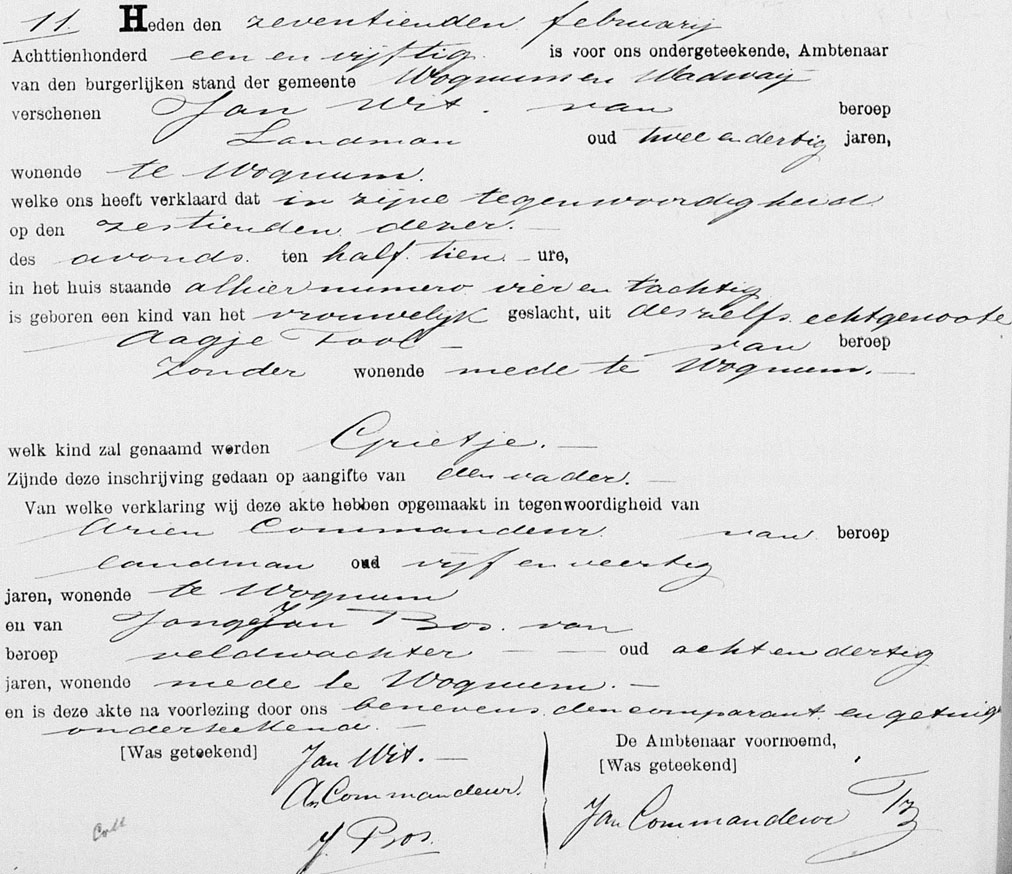 11. Heden den zeventienden februarij
Achttienhonderd een en vijftig is voor ons ondergeteekende, Ambtenaar
van den burgerlijken stand der gemeente Wognum en Wadway
verschenen Jan Wit. van beroep
Landman oud twee en dertig jaren,
wonende te Wognum.
welke ons heeft verklaard dat in zijne tegenwoordigheid
op den zestienden dezer. —
des avonds. ten half tien — ure,
in het huis staande alhier numero vier en tachtig
is geboren een kind van het vrouwelijk geslacht, uit deszelfs echtgenoote
— Aagje Tool — van beroep
Zonder wonende mede te Wognum. —
welk kind zal genaamd worden Grietje. —
Zijnde deze inschrijving gedaan op aangifte van den vader. —
Van welke verklaring wij deze akte hebben opgemaakt in tegenwoordigheid van
Arien Commandeur. van beroep
landman oud vijf en veertig
jaren, wonende te Wognum
en van Jonge Jan Bos. van
beroep veldwachter — — oud acht en dertig
jaren, wonende mede te Wognum. —
en is deze akte na voorlezing door ons benevens den comparant en getuige
onderteekend. —
[Was geteekend] Jan Wit. —
An Commandeur.
J. Bos.
De Ambtenaar voornoemd,
[Was geteekend]
Jan Commandeur Tz
Coll